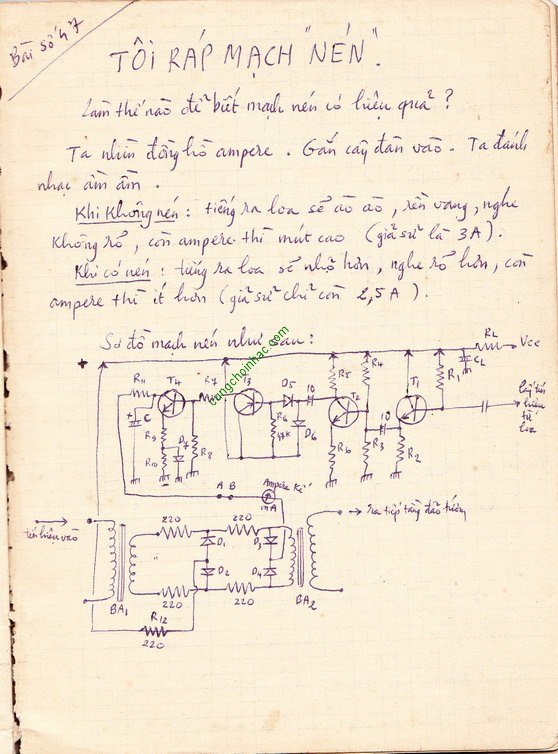 Bài số 47
TÔI RÁP MẠCH "NÉN".
Làm thế nào để biết mạch nén có hiệu quả ?
Ta nhìn đồng hồ ampere . Gắn cây đàn vào . Ta đánh
nhạc ầm ầm .
Khi không nén : tiếng ra loa sẽ ào ào , rền vang , nghe
không rõ , còn ampere thì mút cao (giả sử là 3A) .
Khi có nén : tiếng ra loa sẽ nhỏ hơn , nghe rõ hơn , còn
ampere thì ít hơn (giả sử chỉ còn 2,5A ) .
Sơ đồ mạch nén như sau :
cungchoinhac.com
RL
Vcc
+
R11
T4
R7
T3
D5
10
R5
R4
T2
T1
R1
CL
Lấy tín
hiệu
từ
loa
+
C
R9
D7
R8
R10
R6
D6
R6
R3
10
R2
A B
Ampere Kế
mA
tín hiệu vào
220
220
D1
D3
Ra tiếp tầng đảo tướng
D2
D4
220
220
BA1
BA2
R12
220